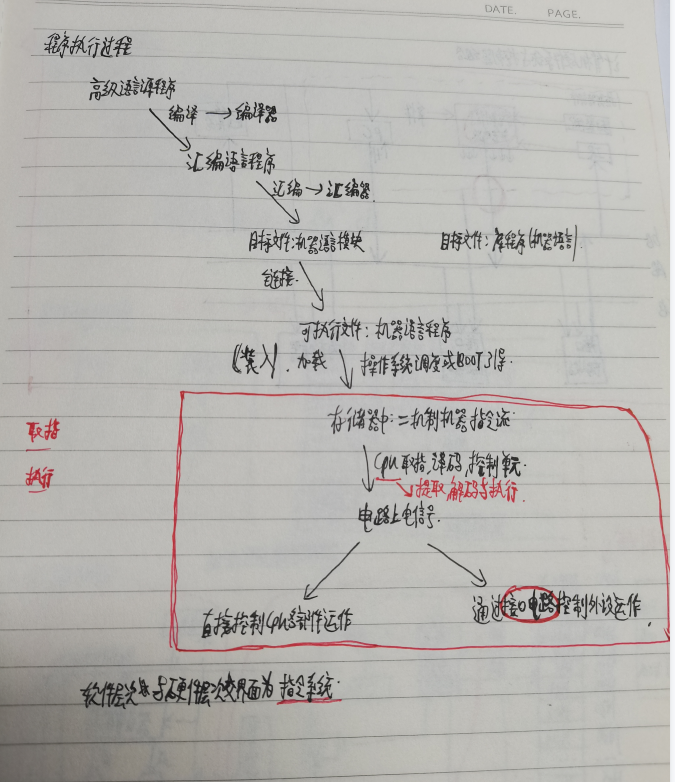 DATE. PAGE.
程序执行过程
高级语言源程序
编译 → 编译器
汇编语言程序
汇编 → 汇编器
目标文件:机器语言模块 目标文件:库程序(机器语言)
链接.
可执行文件:机器语言程序
(装入).加载 操作系统调度或BOOT引导.
存储器中:二机制机器指令流
取指
CPU取指,译码,控制单元.
执行
提取 解码与执行.
电路上电信号.
直接控制CPU部件运作
通过接口电路控制外设运作.
软件层次与硬件层次交界面为指令系统.